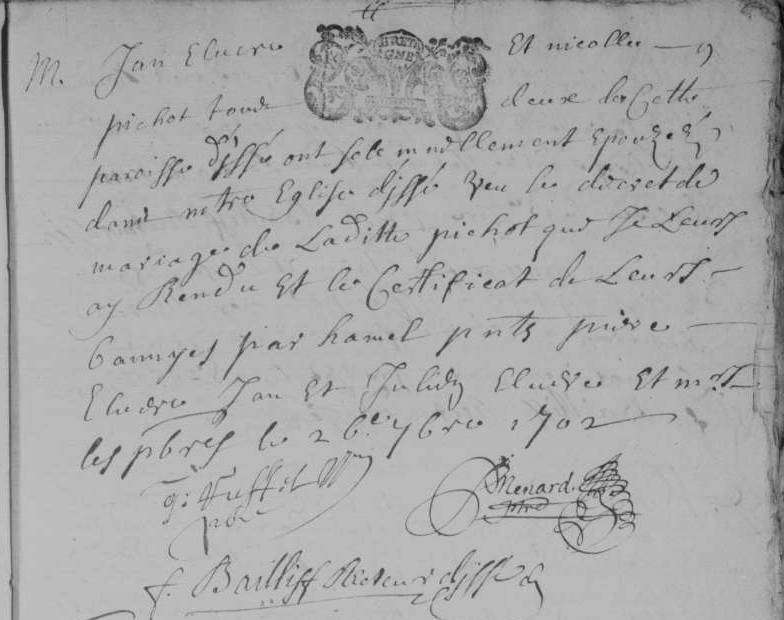 M. Jan Eluere Et nicolle
pichot tous deux de Cette
paroisse d'issé ont sole mnellement Epouzé
dans notre Eglise dissé veu le decret de
mariage de Laditte pichot que Je Leurs
ay Rendu Et le Certificat de Leurs
bannyes par hamel pnts pierre
Eluere Jan Et Julien Eluere Et mrs
les pbres le 26e 7bre 1702
g: tuffet
pbre
Menard
pbre
f. Bailliff Recteur dissé